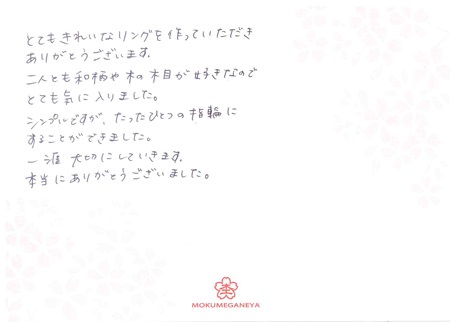 とてもきれいなリングを作っていただき
ありがとうございます.
二人とも和柄や木の木目が好きなので
とても気に入りました。
シンプルですが、たったひとつの指輪に
することができました。
一涯 大切にしていきます.
本当にありがとうございました。
MOKUMEGANEYA